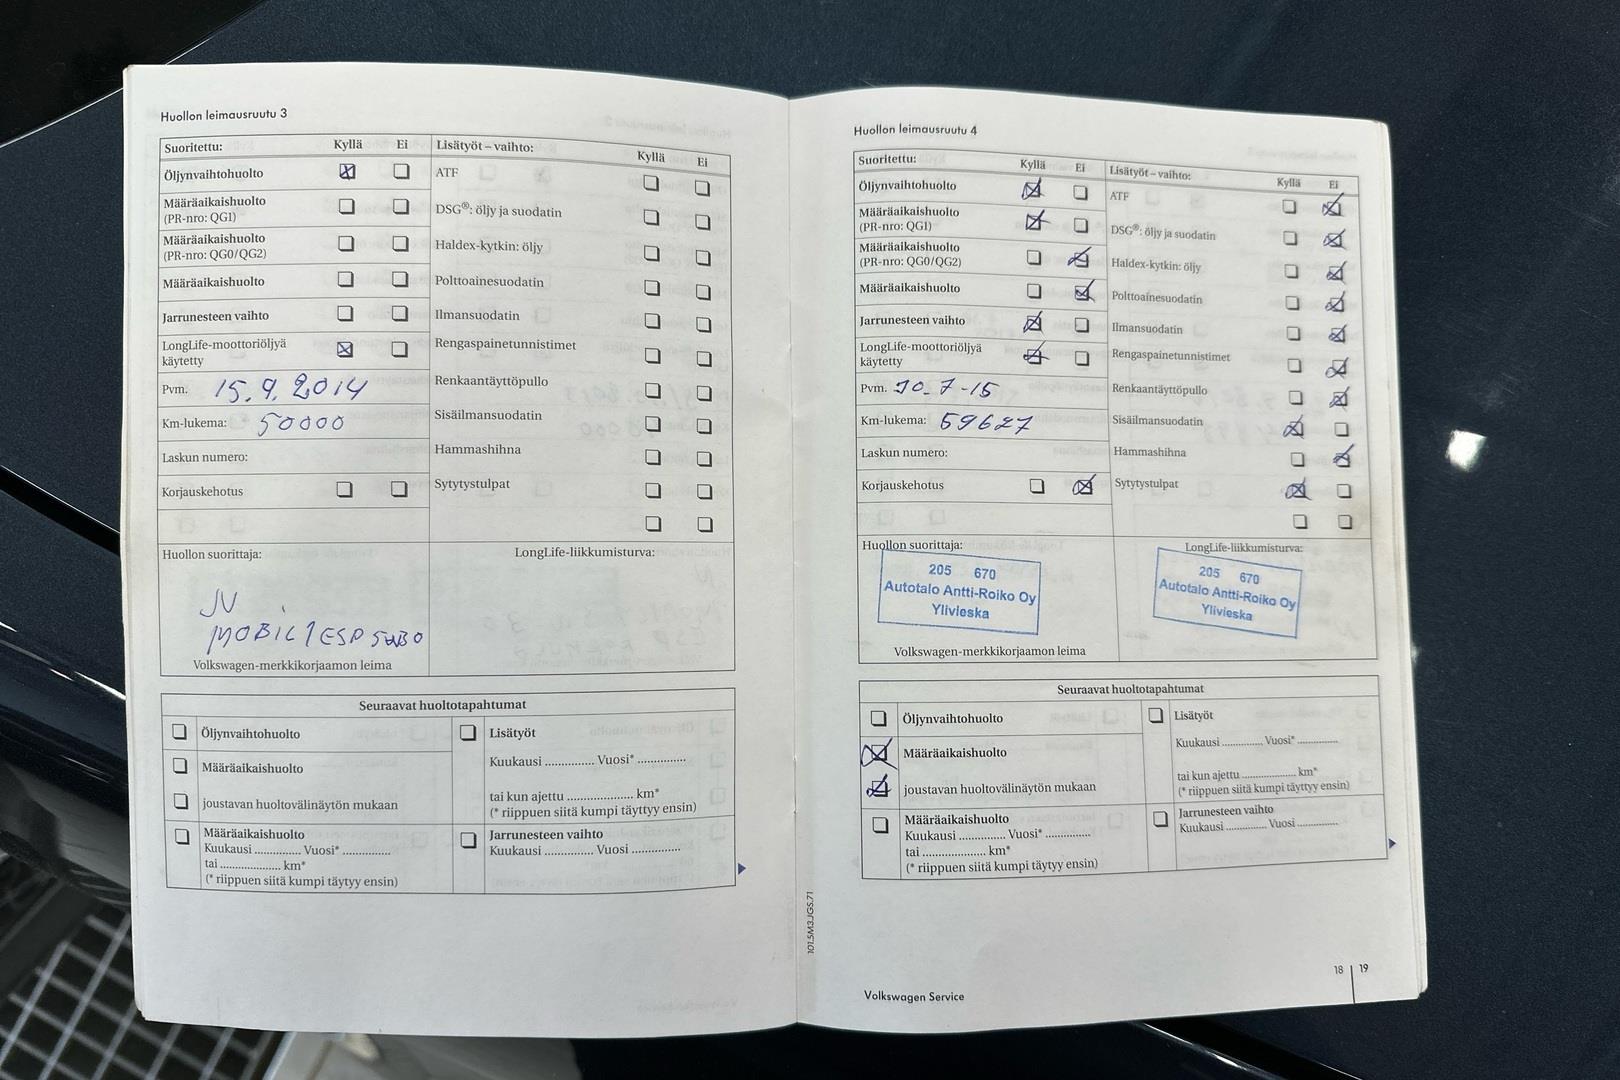 Huollon leimausruutu 3
Suoritettu: Kyllä Ei Lisätyöt – vaihto: Kyllä Ei
Öljynvaihtohuolto ATF
Määräaikaishuolto
(PR-nro: QG1) DSG®: öljy ja suodatin
Määräaikaishuolto
(PR-nro: QG0/QG2) Haldex-kytkin: öljy
Määräaikaishuolto Polttoainesuodatin
Jarrunesteen vaihto Ilmansuodatin
LongLife-moottoriöljyä
käytetty Rengaspainetunnistimet
Pvm. 15.9.2014 Renkaantäyttöpullo
Km-lukema: 50000 Sisäilmansuodatin
Laskun numero: Hammashihna
Korjauskehotus Sytytystulpat
Huollon suorittaja: LongLife-liikkumisturva:
MOBIL 1 ESP 5W30
Volkswagen-merkkikorjaamon leima
Seuraavat huoltotapahtumat
Öljynvaihtohuolto Lisätyöt
Määräaikaishuolto Kuukausi .............. Vuosi* ..............
joustavan huoltovälinäytön mukaan tai kun ajettu .................... km*
(* riippuen siitä kumpi täyttyy ensin)
Määräaikaishuolto Jarrunesteen vaihto
Kuukausi .............. Vuosi* .............. Kuukausi .............. Vuosi ..............
tai .................... km*
(* riippuen siitä kumpi täytyy ensin)
101.5M3.JGS.71
Huollon leimausruutu 4
Suoritettu: Kyllä Ei Lisätyöt – vaihto: Kyllä Ei
Öljynvaihtohuolto ATF
Määräaikaishuolto
(PR-nro: QG1) DSG®: öljy ja suodatin
Määräaikaishuolto
(PR-nro: QG0/QG2) Haldex-kytkin: öljy
Määräaikaishuolto Polttoainesuodatin
Jarrunesteen vaihto Ilmansuodatin
LongLife-moottoriöljyä
käytetty Rengaspainetunnistimet
Pvm. 10.7-15 Renkaantäyttöpullo
Km-lukema: 59627 Sisäilmansuodatin
Laskun numero: Hammashihna
Korjauskehotus Sytytystulpat
Huollon suorittaja: LongLife-liikkumisturva:
205 670
Autotalo Antti-Roiko Oy
Ylivieska
205 670
Autotalo Antti-Roiko Oy
Ylivieska
Volkswagen-merkkikorjaamon leima
Seuraavat huoltotapahtumat
Öljynvaihtohuolto Lisätyöt
Määräaikaishuolto Kuukausi .............. Vuosi* ..............
joustavan huoltovälinäytön mukaan tai kun ajettu .................... km*
(* riippuen siitä kumpi täyttyy ensin)
Määräaikaishuolto Jarrunesteen vaihto
Kuukausi .............. Vuosi* .............. Kuukausi .............. Vuosi ..............
tai .................... km*
(* riippuen siitä kumpi täytyy ensin)
18 | 19
Volkswagen Service